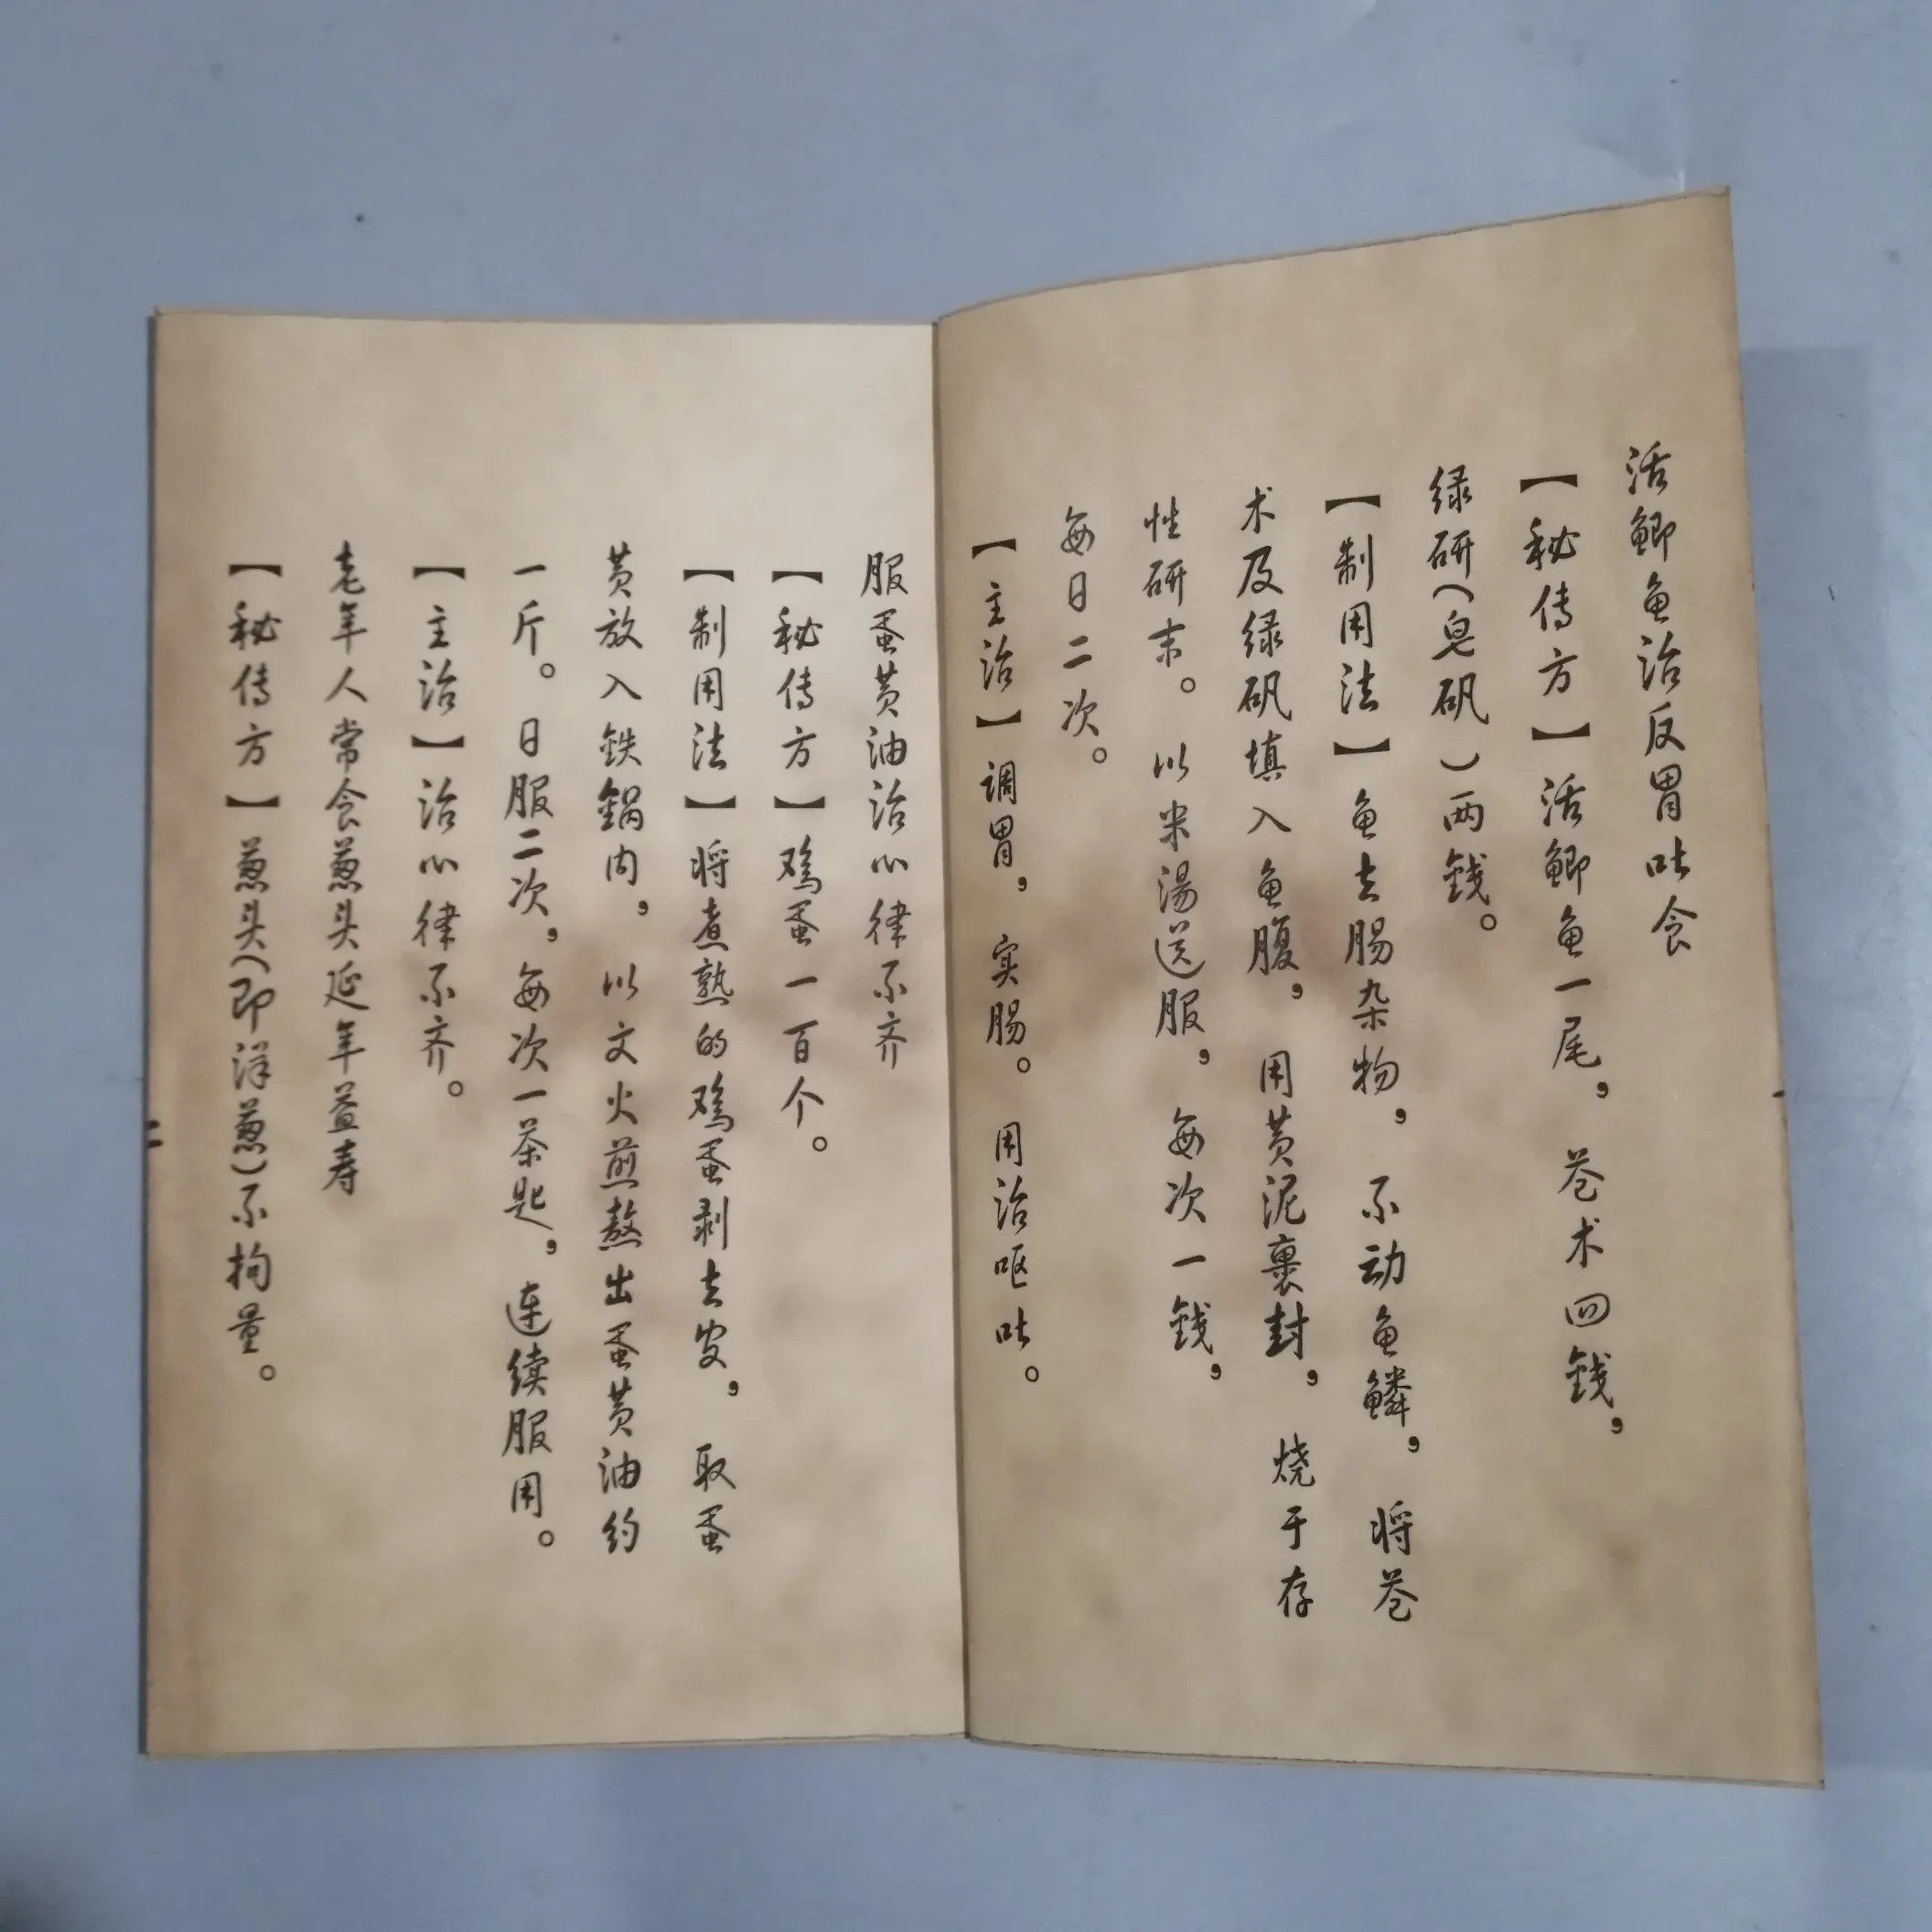 活鲫鱼治反胃吐食
【秘传方】活鲫鱼一尾，苍术四钱，
绿研（皂矾）两钱。
【制用法】鱼去肠杂物，不动鱼鳞，将苍
术及绿矾填入鱼腹，用黄泥裹封，烧于存
性研末。以米湯送服，每次一钱，
每日二次。
【主治】调胃，实肠。用治呕吐。
服蛋黄油治心律不齐
【秘传方】鸡蛋一百个。
【制用法】将煮熟的鸡蛋剥去皮，取蛋
黄放入铁锅内，以文火煎熬出蛋黄油约
一斤。日服二次，每次一茶匙，连续服用。
【主治】治心律不齐。
老年人常食葱头延年益寿
【秘传方】葱头（即洋葱）不拘量。
二